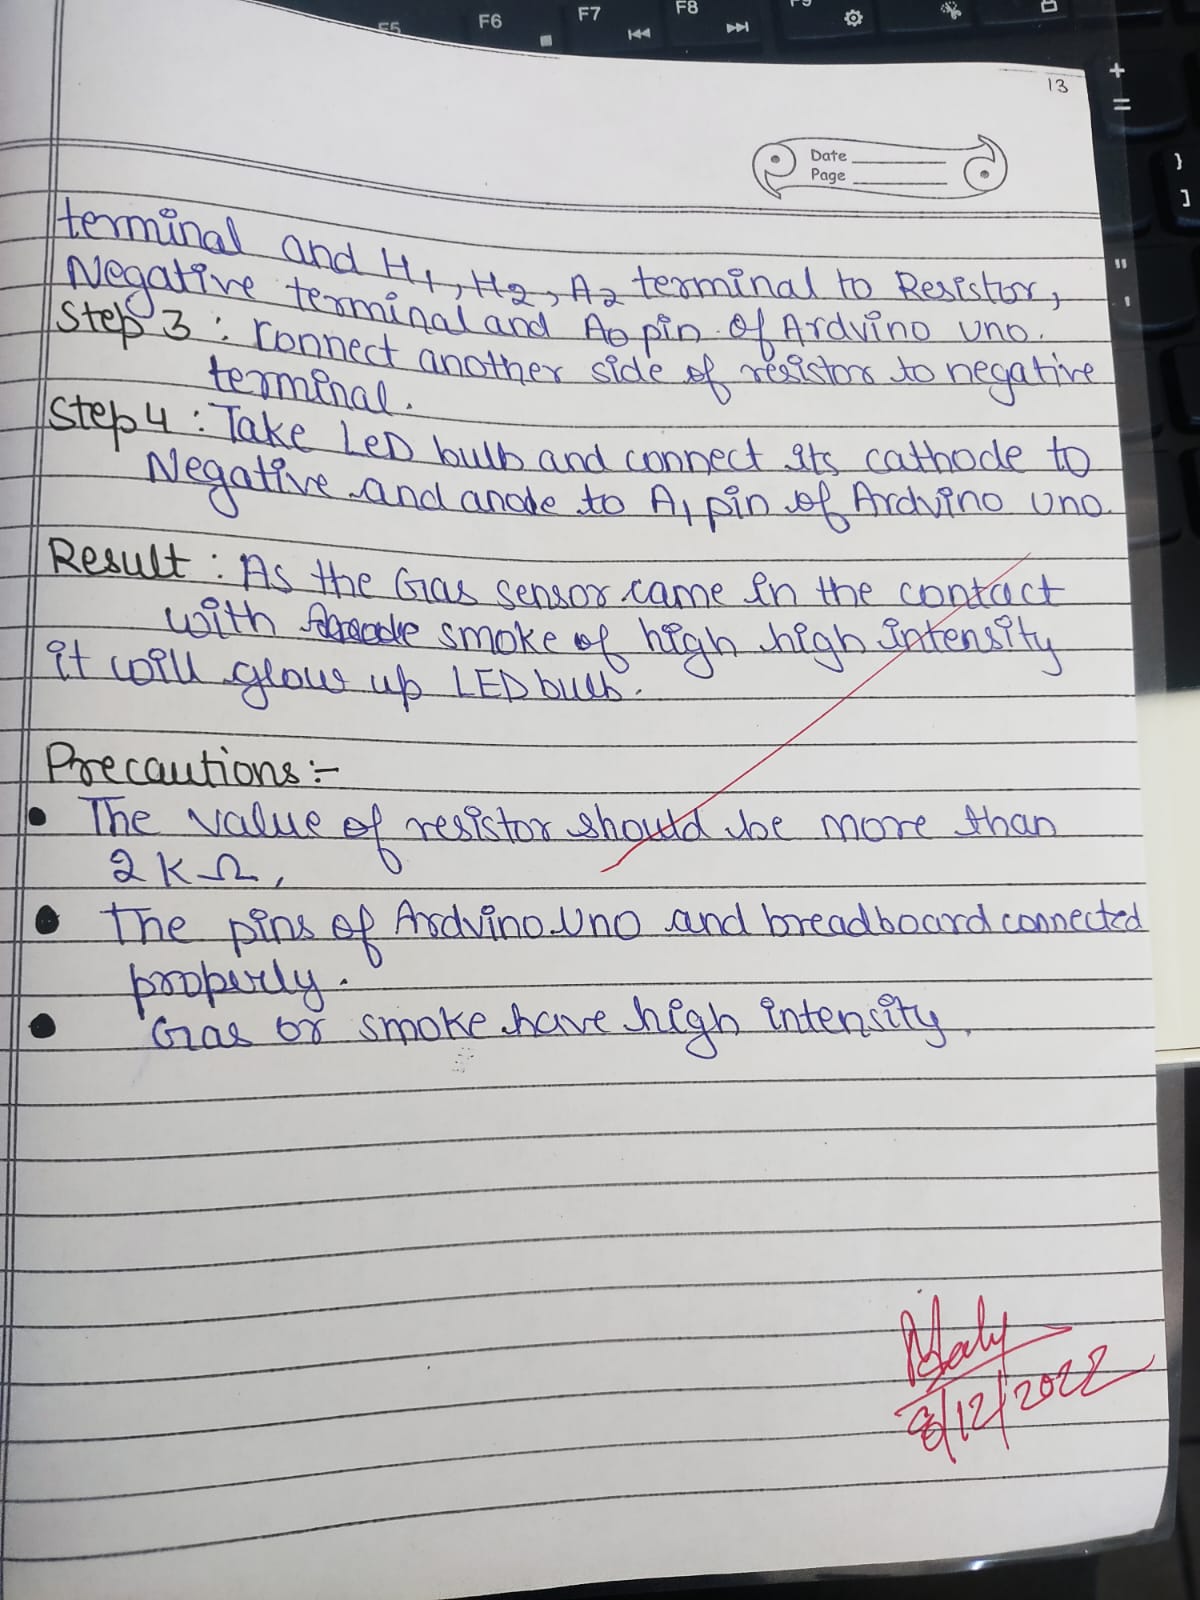 F5 F6 F7 F8 F9
13
Date
Page
terminal and H1, H2, A2 terminal to Resistor,
Negative terminal and A0 pin of Ardvino Uno.
Step 3 : Connect another side of resistor to negative
terminal.
Step 4 : Take LED bulb and connect its cathode to
Negative and anode to A1 pin of Ardvino Uno.
Result : As the Gas sensor came in the contact
with smoke of high high intensity
it will glow up LED bulb.
Precautions :-
• The value of resistor should be more than
2 K Ω,
• The pins of Ardvino Uno and breadboard connected
properly.
• Gas or smoke have high intensity.
8/12/2022